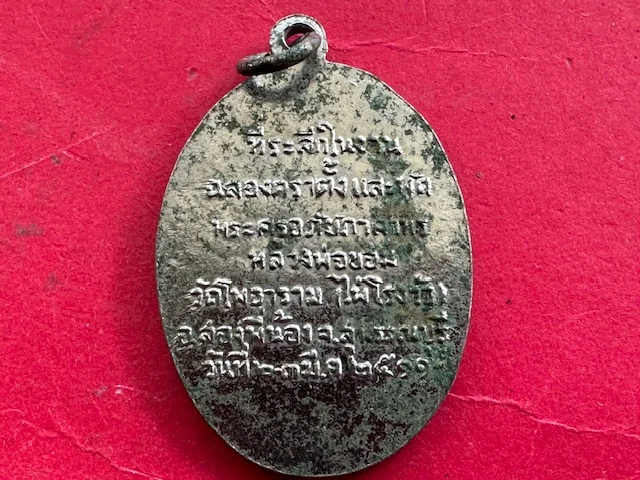 ที่ระลึกในงาน
ฉลองตราตั้งและพัด
พระครู
หลวงพ่อขอม
วัดโพธาราม (ไผ่โรงวัว)
อ.สองพี่น้อง จ.สุพรรณบุรี
วันที่ ๒-๓ มี.ค ๒๕